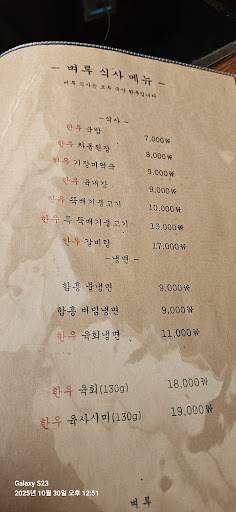 - 벼루 식사 메뉴 -
벼루 식사는 모두 국산 한우입니다
-식사-
한우 국밥 7,000₩
한우 차돌된장 8,000₩
한우 기장미역국 9,000₩
한우 육개장 9,000₩
한우 뚝배기불고기 10,000₩
한우 특 뚝배기불고기 13,000₩
한우 갈비탕 17,000₩
-냉면-
함흥 물냉면 9,000₩
함흥 비빔냉면 9,000₩
한우 육회냉면 11,000₩
한우 육회(130g) 18,000₩
한우 육사시미(130g) 19,000₩
벼루
Galaxy S23
2025년 10월 30일 오후 12:51